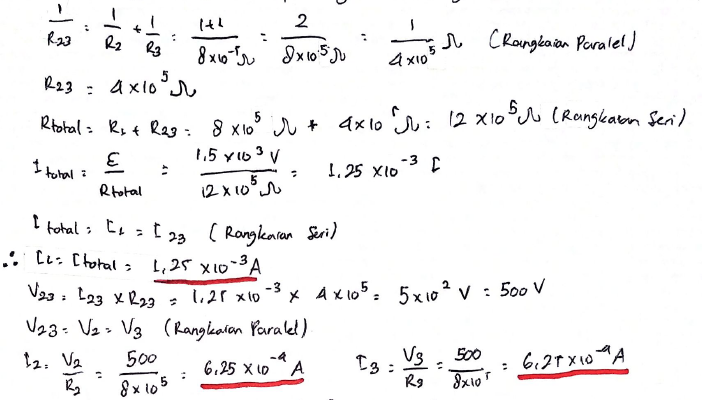 1/R23 = 1/R2 + 1/R3 = 1+1/8×10⁻⁵Ω = 2/8×10⁵Ω = 1/4×10⁵ Ω (Rangkaian Paralel)
R23 = 4×10⁵Ω
Rtotal = R1 + R23 = 8×10⁵ Ω + 4×10⁵Ω = 12×10⁵Ω (Rangkaian Seri)
I total = ε/Rtotal = 1,5×10³ V/12×10⁵Ω = 1,25×10⁻³ I
I total = I1 = I23 (Rangkaian Seri)
∴ I1 = Itotal = 1,25×10⁻³A
V23 = I23 × R23 = 1,25×10⁻³ × 4×10⁵ = 5×10² V = 500 V
V23 = V2 = V3 (Rangkaian Paralel)
I2 = V2/R2 = 500/8×10⁵ = 6,25×10⁻⁴ A I3 = V3/R3 = 500/8×10⁵ = 6,25×10⁻⁴A